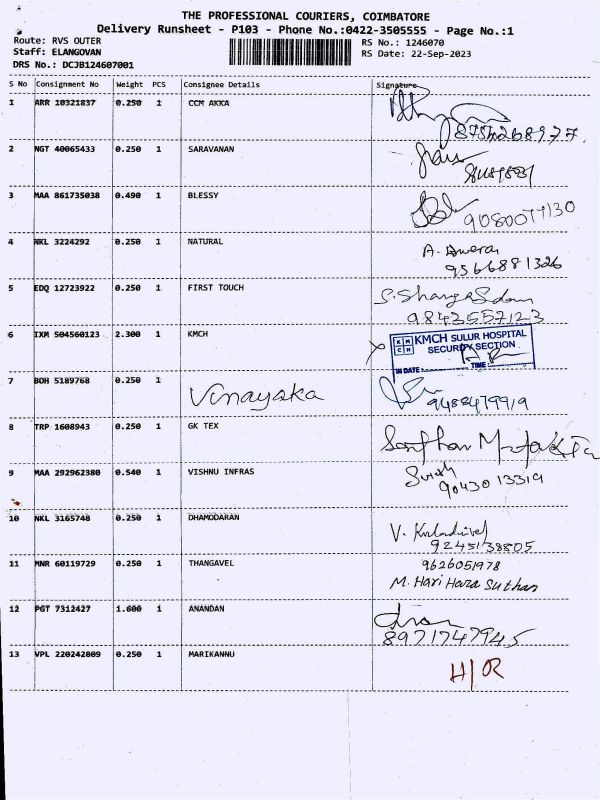 THE PROFESSIONAL COURIERS, COIMBATORE
Delivery Runsheet - P103 - Phone No.:0422-3505555 - Page No.:1
Route: RVS OUTER
RS No.: 1246070
Staff: ELANGOVAN
RS Date: 22-Sep-2023
DRS No.: DCJB124607001
S No Consignment No Weight PCS Consignee Details Signature
1 ARR 10321837 0.250 1 CCM AKKA
8754268977
2 NGT 40065433 0.250 1 SARAVANAN
3 MAA 861735038 0.490 1 BLESSY
4 NKL 3224292 0.250 1 NATURAL
9566881326
5 EDQ 12723922 0.250 1 FIRST TOUCH
9842557123
6 IXM 504560123 2.300 1 KMCH
KMCH SULUR HOSPITAL
SECURITY SECTION
IN DATE: TIME:
7 BDH 5189768 0.250 1 Vinayaka
9488479919
8 TRP 1608943 0.250 1 GK TEX
9 MAA 292962380 0.540 1 VISHNU INFRAS
9043013319
10 NKL 3165748 0.250 1 DHAMODARAN
9245138805
11 MNR 60119729 0.250 1 THANGAVEL
9626051978
M. Hari Hara Suthan
12 PGT 7312427 1.600 1 ANANDAN
8971747945
13 VPL 220242809 0.250 1 MARIKANNU
H/R